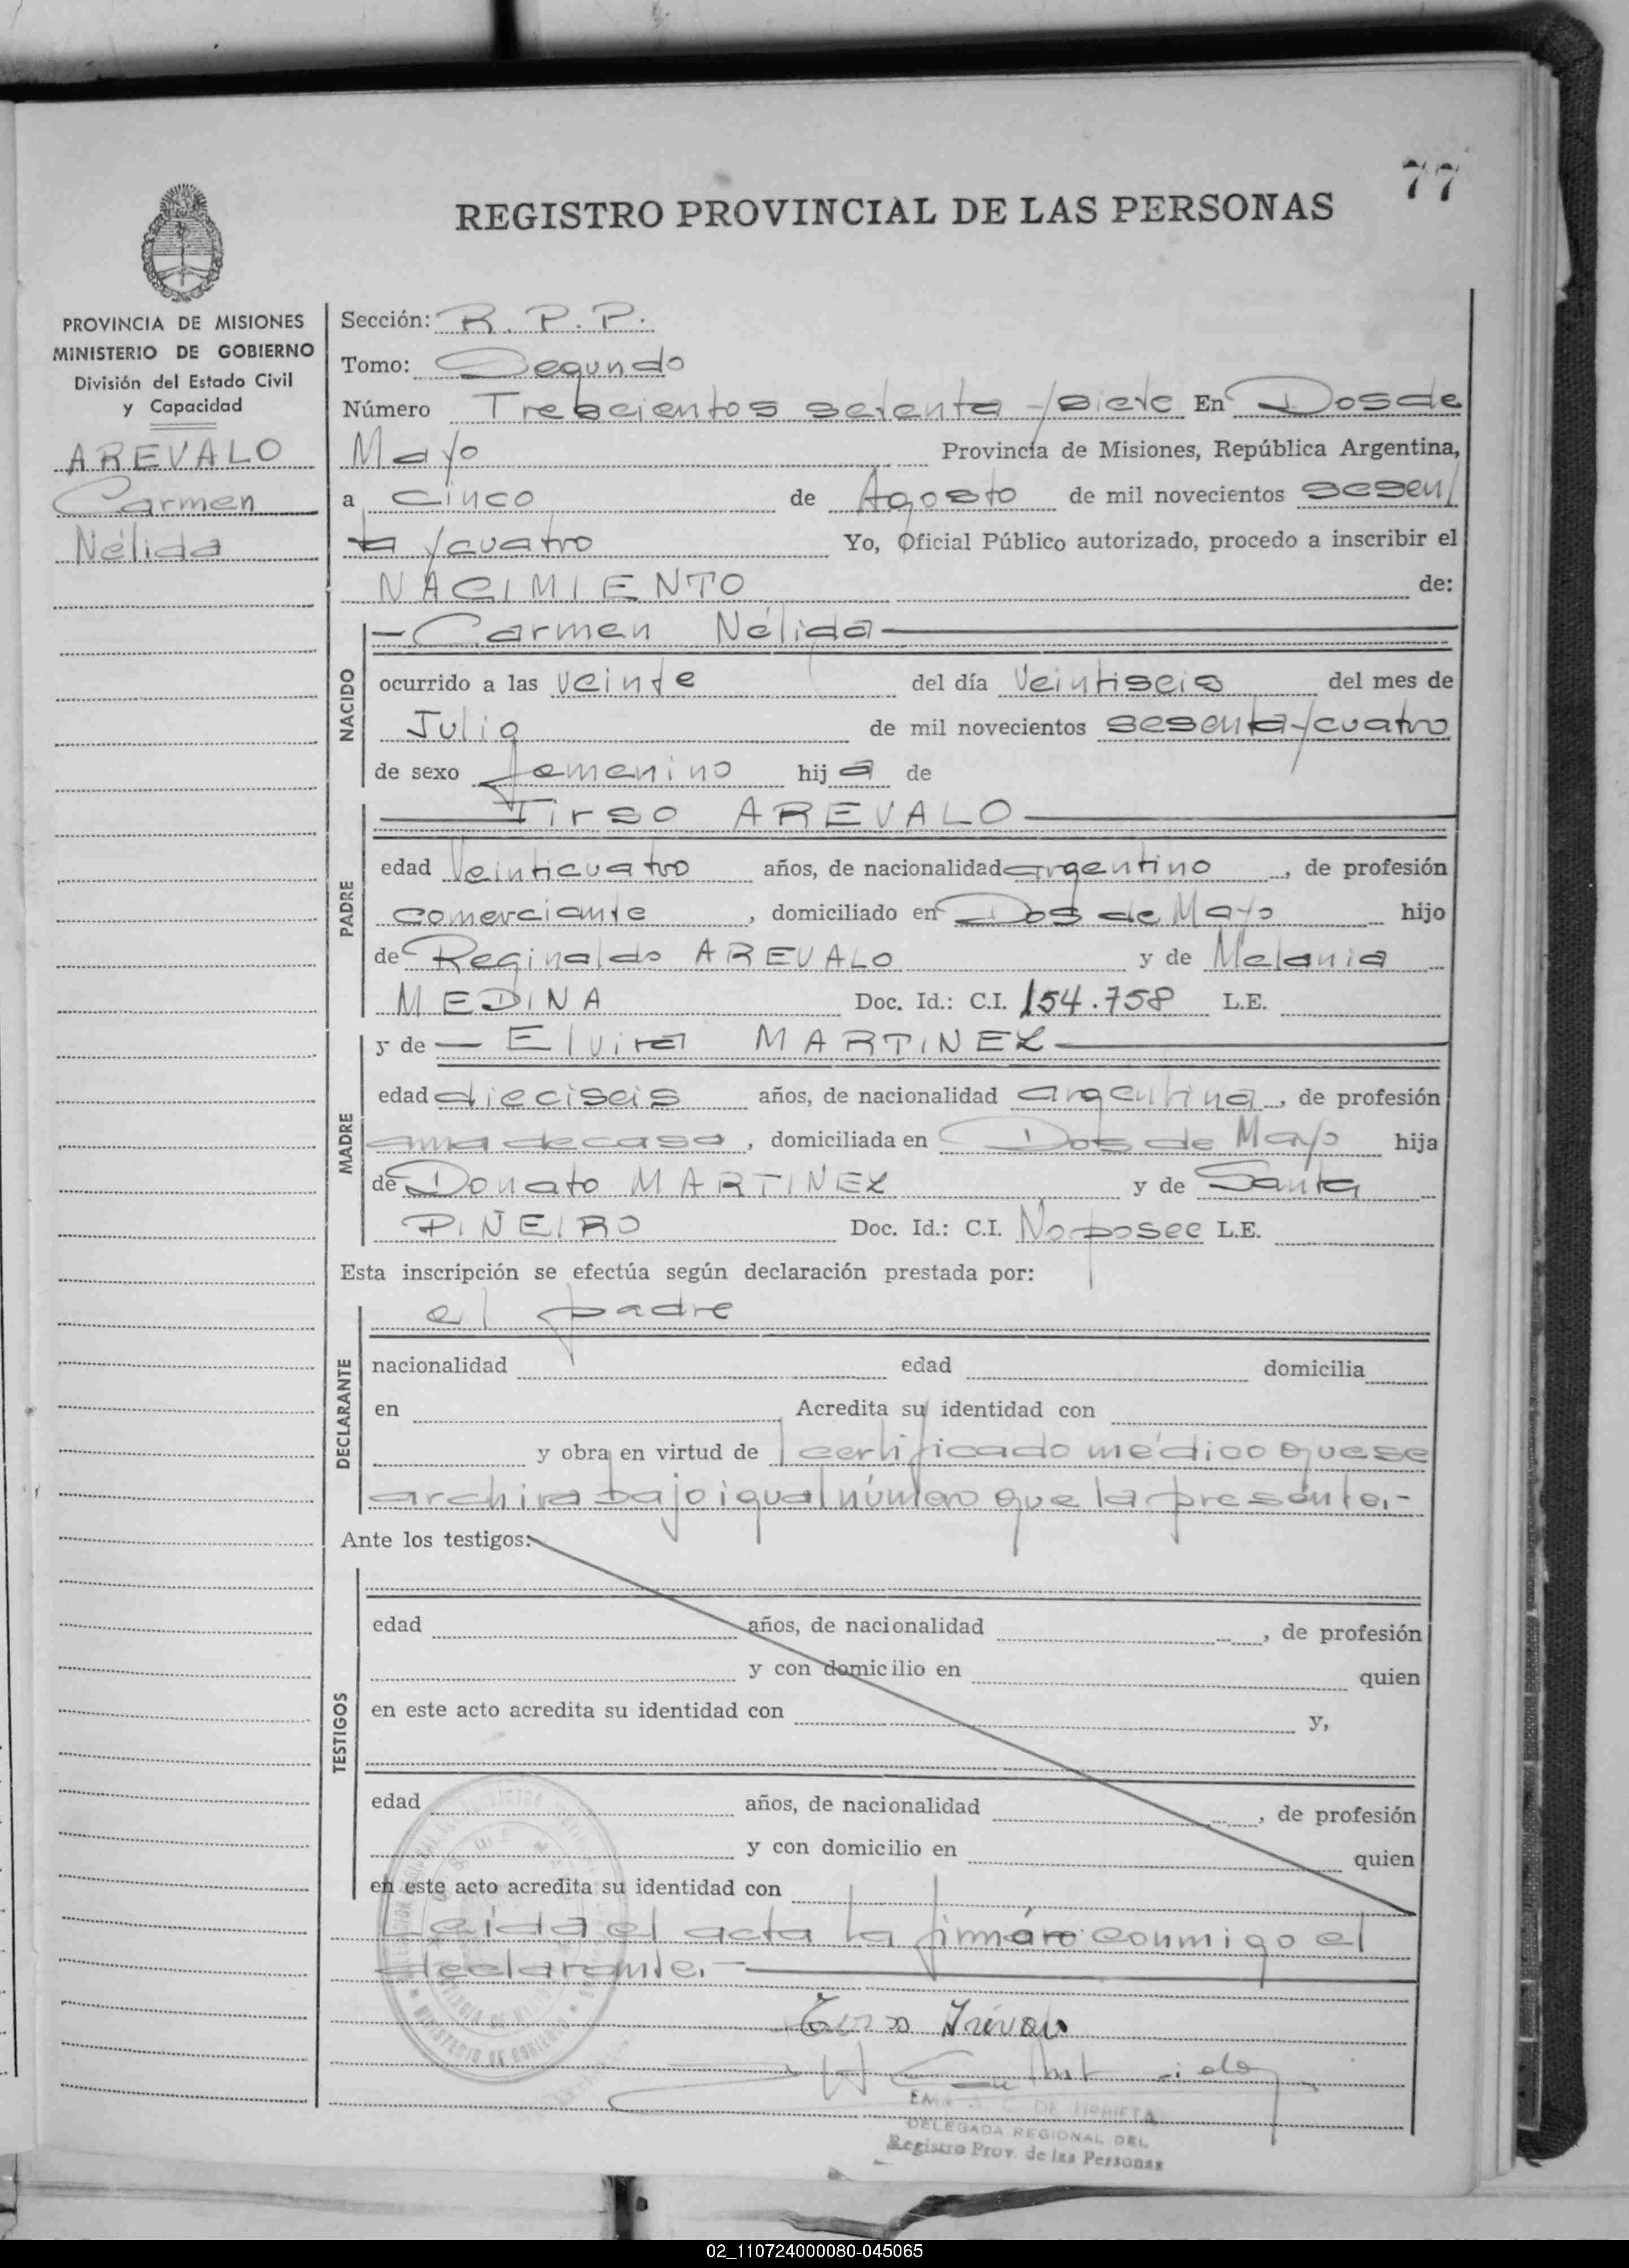 77
REGISTRO PROVINCIAL DE LAS PERSONAS
PROVINCIA DE MISIONES
MINISTERIO DE GOBIERNO
División del Estado Civil
y Capacidad
AREVALO
Carmen
Nélida
Sección: R. P. P.
Tomo: Segundo
Número Trescientos setenta y siete En Dos de
Mayo Provincia de Misiones, República Argentina,
a cinco de Agosto de mil novecientos sesen/
ta y cuatro Yo, Oficial Público autorizado, procedo a inscribir el
NACIMIENTO de:
NACIDO
— Carmen Nélida —
ocurrido a las veinte del día Veintiseis del mes de
Julio de mil novecientos sesenta y cuatro
de sexo femenino hija de
PADRE
Tirso AREVALO
edad Veinticuatro años, de nacionalidad argentino, de profesión
comerciante, domiciliado en Dos de Mayo hijo
de Reginaldo AREVALO y de Melania
MEDINA Doc. Id.: C.I. 154.758 L.E.
MADRE
y de — Elvira MARTINEZ —
edad dieciseis años, de nacionalidad argentina, de profesión
ama de casa, domiciliada en Dos de Mayo hija
de Donato MARTINEZ y de Santa
PIÑEIRO Doc. Id.: C.I. No posee L.E.
Esta inscripción se efectúa según declaración prestada por:
DECLARANTE
el padre
nacionalidad edad domicilia
en Acredita su identidad con
y obra en virtud de l certificado médico que se
archiva bajo igual número que la presente.-
Ante los testigos:
TESTIGOS
edad años, de nacionalidad , de profesión
y con domicilio en quien
en este acto acredita su identidad con y,
edad años, de nacionalidad , de profesión
y con domicilio en quien
en este acto acredita su identidad con
Leída el acta la firmáro conmigo el
declarante.-
Tirso Arévalo
DE URRIETA
DELEGADA REGIONAL DEL
Registro Prov. de las Personas
MINISTERIO DE GOBIERNO
02_110724000080-045065